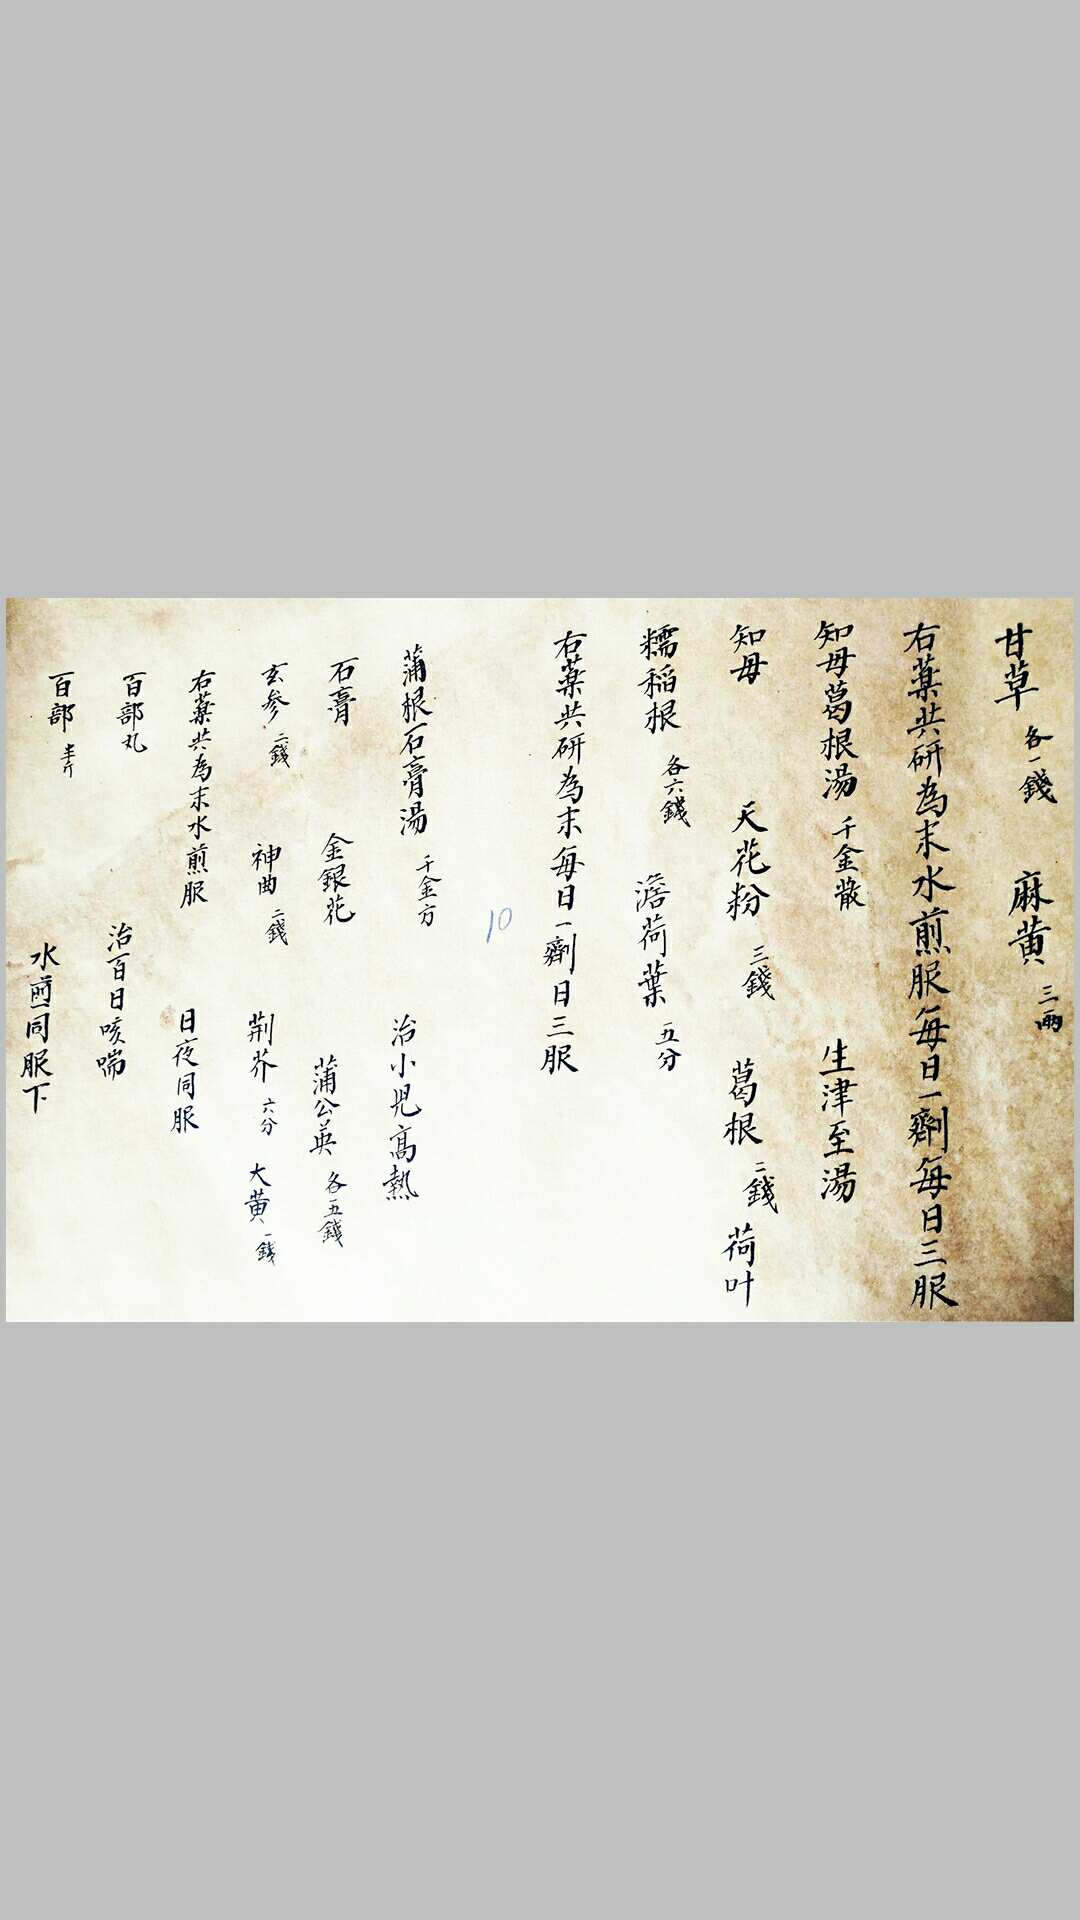 甘草 各一錢 麻黄 三两
右薬共研為末水煎服每日一劑每日三服
知母葛根湯 千金散 生津至湯
知母 天花粉 三錢 葛根 二錢 荷叶
糯稻根 各六錢 澹荷葉 五分
右薬共研為末每日一劑日三服
10
蒲根石膏湯 千金方 治小児高熱
石膏 金銀花 蒲公英 各五錢
玄参 二錢 神曲 二錢 荆芥 六分 大黄 一錢
右薬共為末水煎服 日夜同服
百部丸 治百日咳喘
百部 半斤 水煎同服下